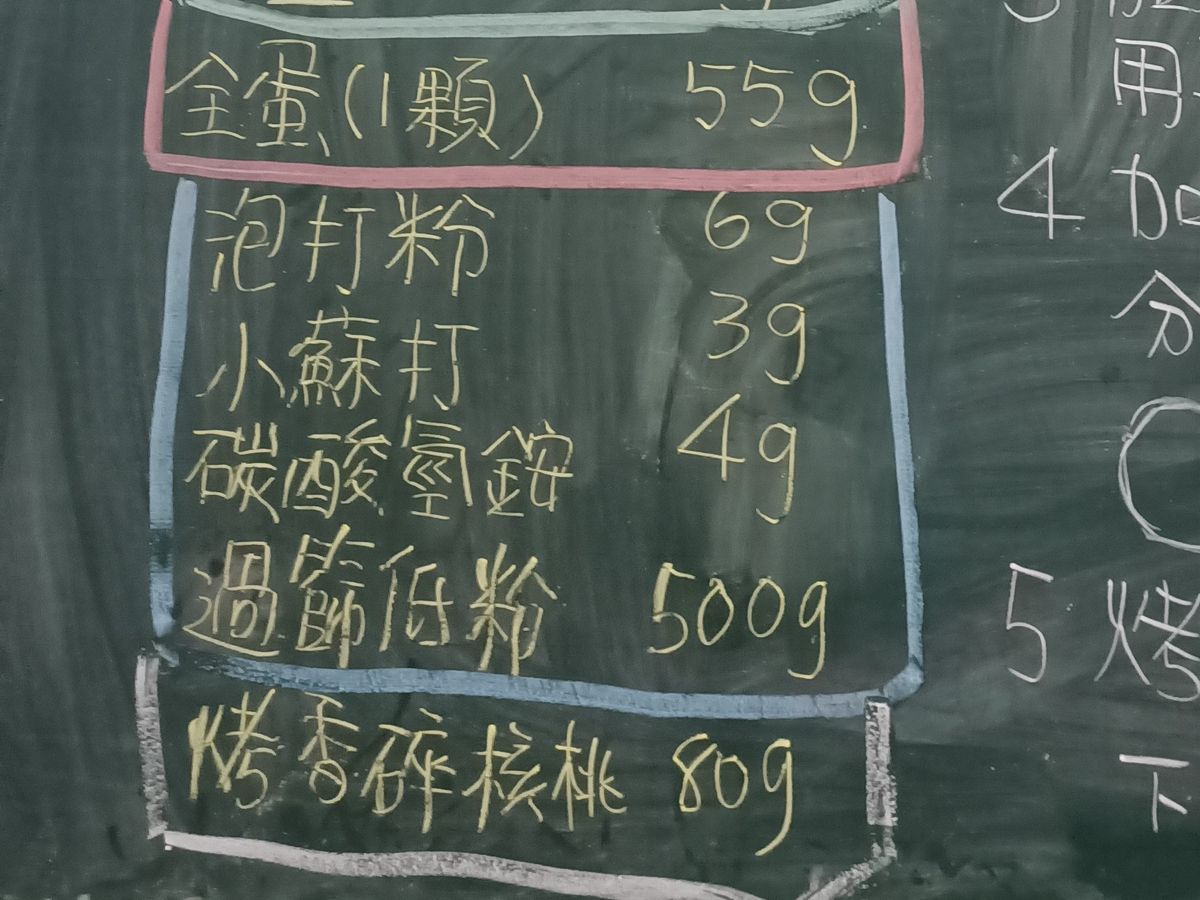 全蛋(1顆) 55g
泡打粉 6g
小蘇打 3g
碳酸氫銨 4g
過篩低粉 500g
烤香碎核桃 80g
用
4 加
分
5 烤
下